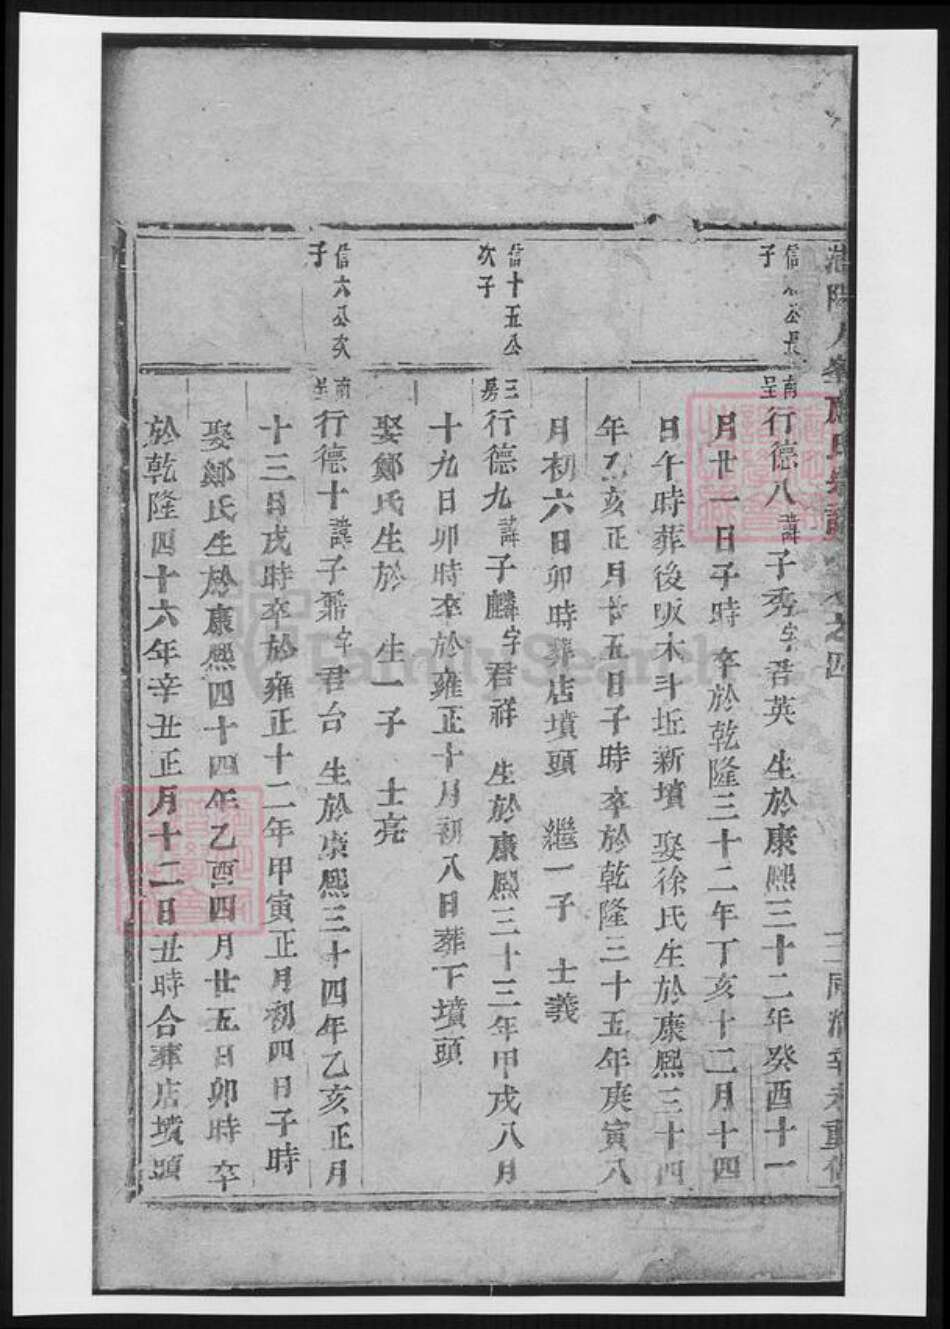 之四
同治辛未重修
信公長
子
南呈行德八諱子秀字君英 生於康熙三十二年癸酉十一
月廿一日子時 卒於乾隆三十二年丁亥十二月十四
日午時葬後坂木斗坵新墳 娶徐氏生於康熙三十四
年乙亥正月廿五日子時卒於乾隆三十五年庚寅八
月初六日卯時葬店墳頭 繼一子 士義
信十五公
次子
三房行德九諱子麟字君祥 生於康熙三十三年甲戌八月
十九日卯時卒於雍正十月初八日葬下墳頭
娶鄭氏生於 生一子 士亮
信六公次
子
南呈行德十諱子鼐字君台 生於康熙三十四年乙亥正月
十三日戌時卒於雍正十二年甲寅正月初四日子時
娶鄭氏生於康熙四十四年乙酉四月廿五日卯時卒
於乾隆四十六年辛丑正月十二日丑時合葬店墳頭
FamilySearch